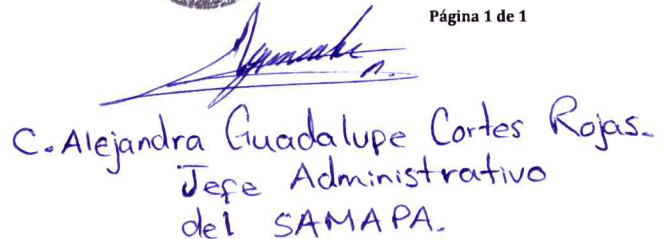 Página 1 de 1
C. Alejandra Guadalupe Cortes Rojas.
Jefe Administrativo
del SAMAPA.